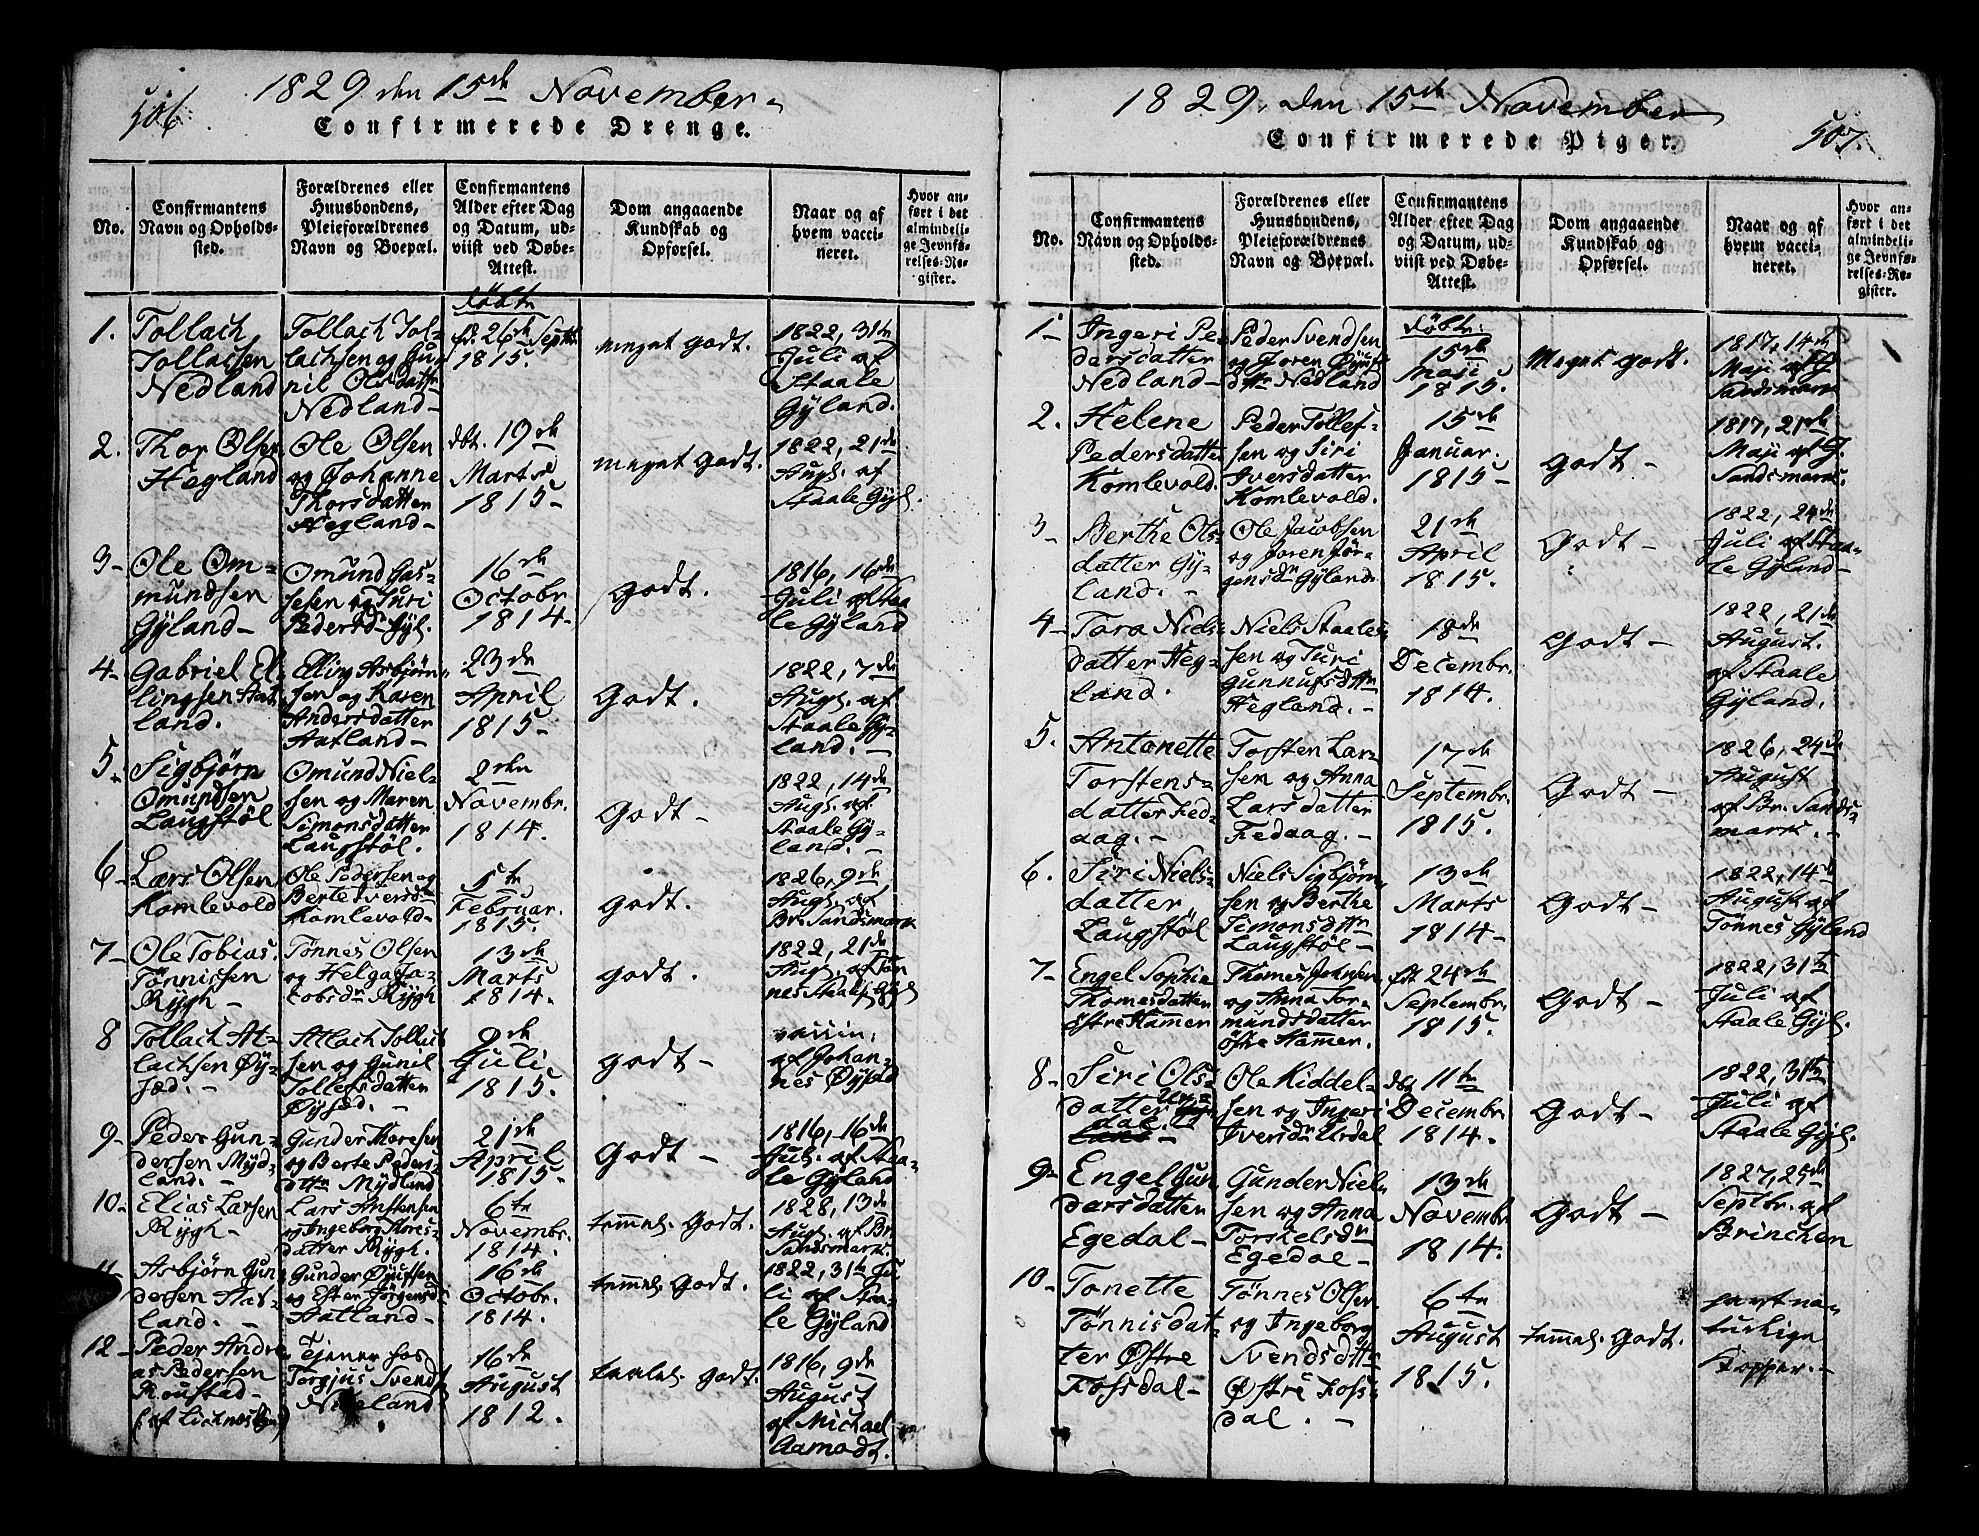 506.
1829 den 15de November.
Confirmerede Drenge.
No.
Confirmantens Navn og Opholds-sted.
Forældrenes eller Huusbondens, Pleieforældrenes Navn og Boepæl.
Confirmantens Alder efter Dag og Datum, ud-viist ved Døbe-Attest.
Dom angaaende Kundskab og Opførsel.
Naar og af hvem vacci-neret.
Hvor an-ført i det almindeli-ge Jevnfø-relses-Re-gister.
døbte
1.
Tollach
Tollacsen
Nedland
Tollach Tol-
lachsen og Gu-
nil Olsdattr
Nedland-
26de Septb.
1815.
meget godt.
1822, 31te
Juli af
Staale
Gyland.
2.
Thor Olsen
Hegland
Ole Olsen
og Johanne
Thorsdatter
Hegland-
dbt. 19de
Marts
1815-
meget godt.
1822, 21de
Augs. af
Staale Gyl.
3-
Ole Om-
mundsen
Gyland-
Omund Gas-
sesen og Turi
Pedersd. Gyl.
16de
Octobr
1814-
Godt.
1816, 16de
Juli af Staa
le Gyland
4-
Gabriel El
lingsen Aat
land.
Elling Asbjørn
sen og Karen
Andersdatter
Aatland-
23de
April
1815-
Godt.
1822, 7de
Augs. af
Staale Gy-
land. -
5-
Sigbjørn
Omundsen
Laugstøl
Omund Niel-
sen og Maren
Simonsdatter
Laugstøl.
2den
Novembr.
1814.
Godt-
1822, 14de
Augs. af
Staale Gy-
land. -
6-
Lars Olsen
Komlevold
Ole Pedersen og
Berte Iversd
Komlevold-
5te
Februar.
1815.
Godt.
1826, 9de
Augs. af
Br. Sandsmark
7-
Ole Tobias.
Tønnissen
Rygh-
Tønnes Olsen
og Helga Ja-
cobsdr Rygh
13de
Marts
1814.
Godt.
1822, 21de
Augs. af Tøn
nes Staales Gyl
8
Tollach At-
lachsen Øy-
sæd. -
Atlach Tollac
sen og Gunil
Tollefsdatter
Øysæd. -
9de
Juli
1815.
Godt-
vaccin:
af Johan-
nes Øysæd
9-
Peder Gun-
dersen Myd-
land. -
Gunder Thoresen
og Berte Peders
dttr Mydland
21de
April
1815-
Godt-
1816, 16de
Juli. af Staa-
le Gyland
10-
Elias Larsen
Rygh-
Lars Anstensen
og Ingeborg Thores-
datter Rygh.
6te
Novembr.
1814.
temmel. Godt.
1828, 13de
Augs. af Br.
Sandsmark.
11-
Asbjørn Gun
dersen Aat-
land. -
Gunder Øyufsen
og Ester Jørgensd
Aatland-
16de
Octobr.
1814.
temmel. Godt.
1822, 31te Ju
li af Staa-
le Gyland
12-
Peder Andre
as Pedersen
Roustad-
Tjener hos
Torgjus Svends
Nedland
16de
August
1812.
taalel. godt.
1816, 9de
August
af Michael
Aamodt.
507.
1829. den 15de November
Confirmerede Piger.
No.
Confirmantens Navn og Opholds-sted.
Forældrenes eller Huusbondens, Pleieforældrenes Navn og Boepæl.
Confirmantens Alder efter Dag og Datum, ud-viist ved Døbe-Attest.
Dom angaaende Kundskab og Opførsel.
Naar og af hvem vacci-neret.
Hvor an-ført i det almindeli-ge Jevnfø-relses-Re-gister.
døbte:
1-
Ingeri Pe
dersdatter
Nedland-
Peder Svendsen
og Joren Øyufs
dttr Nedland
15de
Maji
1815.
Meget godt.
1817, 14de
Maji af G
Sandsmark
2.
Helene
Pedersdatter
Komlevold.
Peder Tollef-
sen og Siri
Iversdatter
Komlevold.
15de
Januar.
1815-
Godt-
1817, 21de
Maji af G.
Sandsmark
3-
Berthe Ols-
datter Gy-
land. -
Ole Jacobsen
og Joren Jør-
gensdr Gyland.
21de
April
1815.
Godt-
1822, 24de
Juli af Staa-
le Gyland-
4-
Tora Niels-
datter Heg-
land.
Niels Staales-
sen og Turi
Gunnufsdttr
Hegland. -
18de
Decembr.
1814.
Godt-
1822, 21de
August.
af Staale
Gyland.
5.
Antonette
Torstens-
datter Fed-
aag. -
Torsten Lar-
sen og Anna
Larsdatter
Fedaag. -
17de
Septembr.
1815.
Godt-
1826, 24de
August
af Br. Sands-
mark. -
6.
Siri Niels-
datter
Laugstøl
Niels Sigbjørn
sen og Berthe
Simonsdttr
Laugstøl-
13de
Marts
1814-
Godt-
1822, 14de
August af
Tønnes Gyland
7-
Engel Sophie
Thomesdatter
Østre Hamer
Thomes Johnsen
og Anna Tor-
mundsdatter
Østre Hamer.
24de
Septembr.
1815.
Godt-
1822, 31te
Juli af
Staale Gyl.
8-
Siri Ols-
datter Ur-
dal
Ole Kiddel-
sen og Ingeri
Iversdr Urdal
11te
Decembr
1814.
Godt-
1822, 31te
Juli af
Staale Gyl.
9-
Engel Gun
dersdatter
Egedal-
Gunder Niel
sen og Anna
Torkelsdr
Egedal-
13de
Novembr
1814.
Godt-
1827, 25de
Septbr. af
Brinchen
10-
Tonette
Tønnisdat-
ter Østre
Fossdal-
Tønnes Olsen
og Ingeborg
Svendsdttr
Østre Foss-
dal. -
6te
August
1815.
temmel. Godt.
havt na-
turlige
Kopper. -